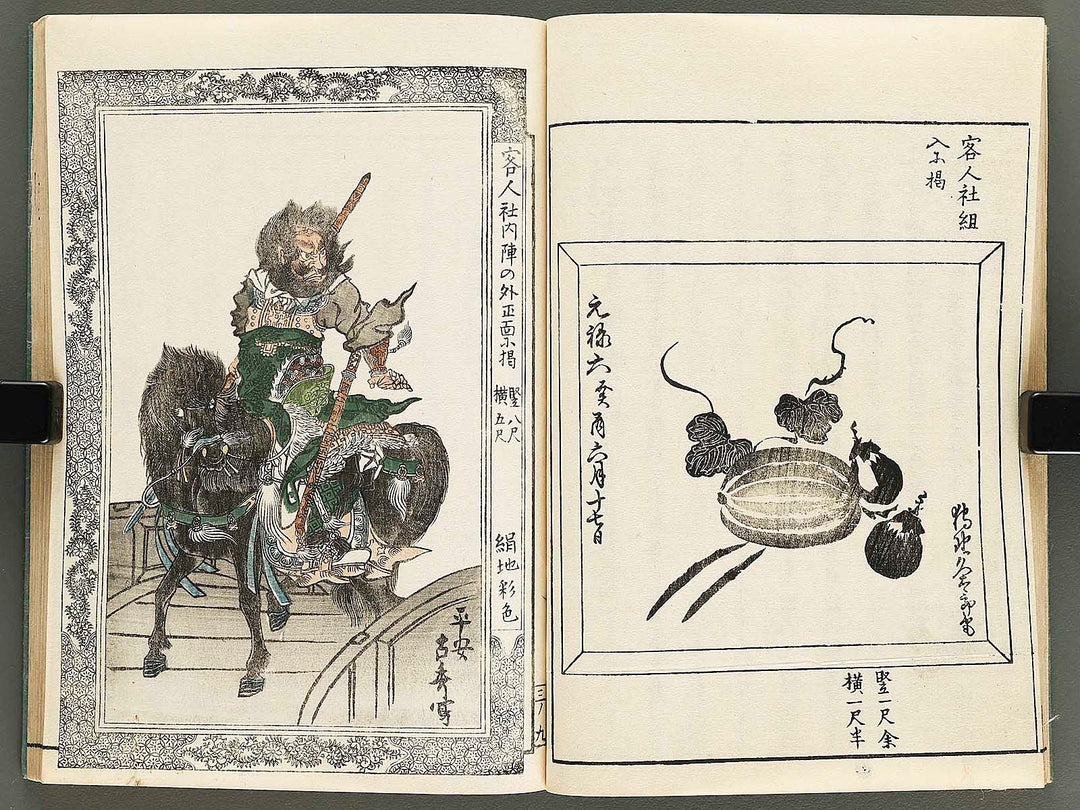 客人社組
入尓掲
元禄六癸酉六月十七日
竪一尺余
横一尺半
客人社内陣の外正面尓掲
竪八尺
横五尺
絹地彩色
平安
吉秀寫